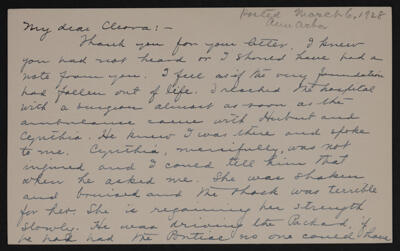 Posted March 6, 1928
Ann Arbor
My dear Cleora:-
Thank you for your letter. I knew
you had not heard or I should have had a
note from you. I feel as if the very foundation
had fallen out of life. I reached the hospital
with a surgeon almost as soon as the
ambulance came with Hubert and
Cynthia. He knew I was there and spoke
to me. Cynthia, mercifully, was not
injured and I could tell him that
when he asked me. She was shaken
and bruised and the shock was terrible
for her. She is regaining her strength
slowly. He was driving the Packard, if
he had had the Pontiac no one could have